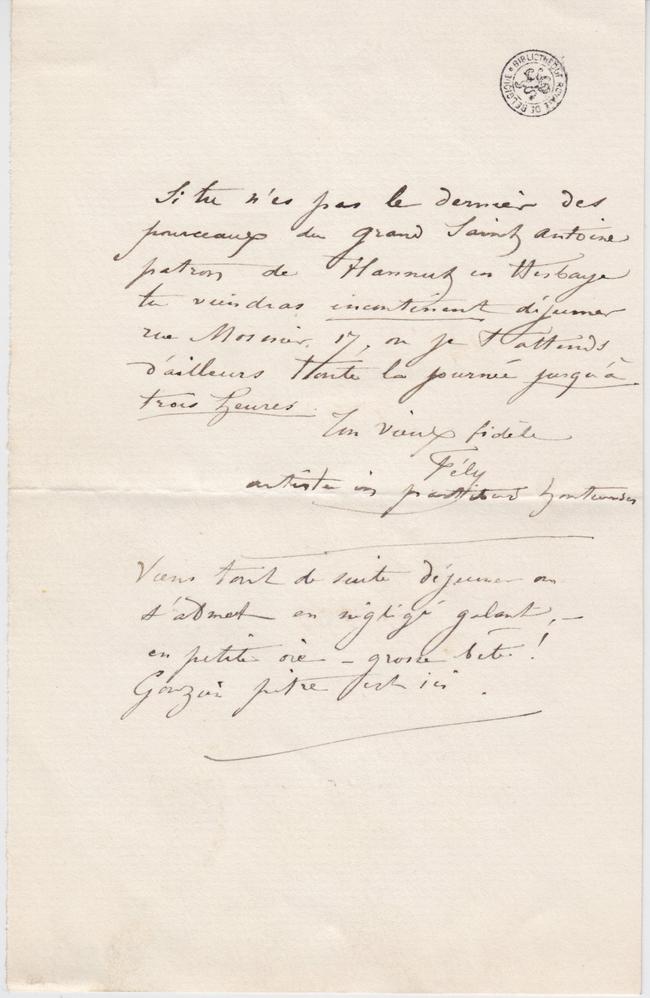 BIBLIOTHÈQUE ROYALE DE BELGIQUE
Si tu n'es pas le dernier des
pourceaux du grand Saint Antoine
patron de Hannut en Hesbaye
tu viendras incontinent déjeuner
rue Mosnier. 17, ou je t'attends
d'ailleurs toute la journée jusqu'à
trois heures.
Ton vieux fidèle
Fély
artiste en
Viens tout de suite déjeuner on
s'admet en négligé galant, –
en petite oie – grosse bête!
Gouzien père est ici.